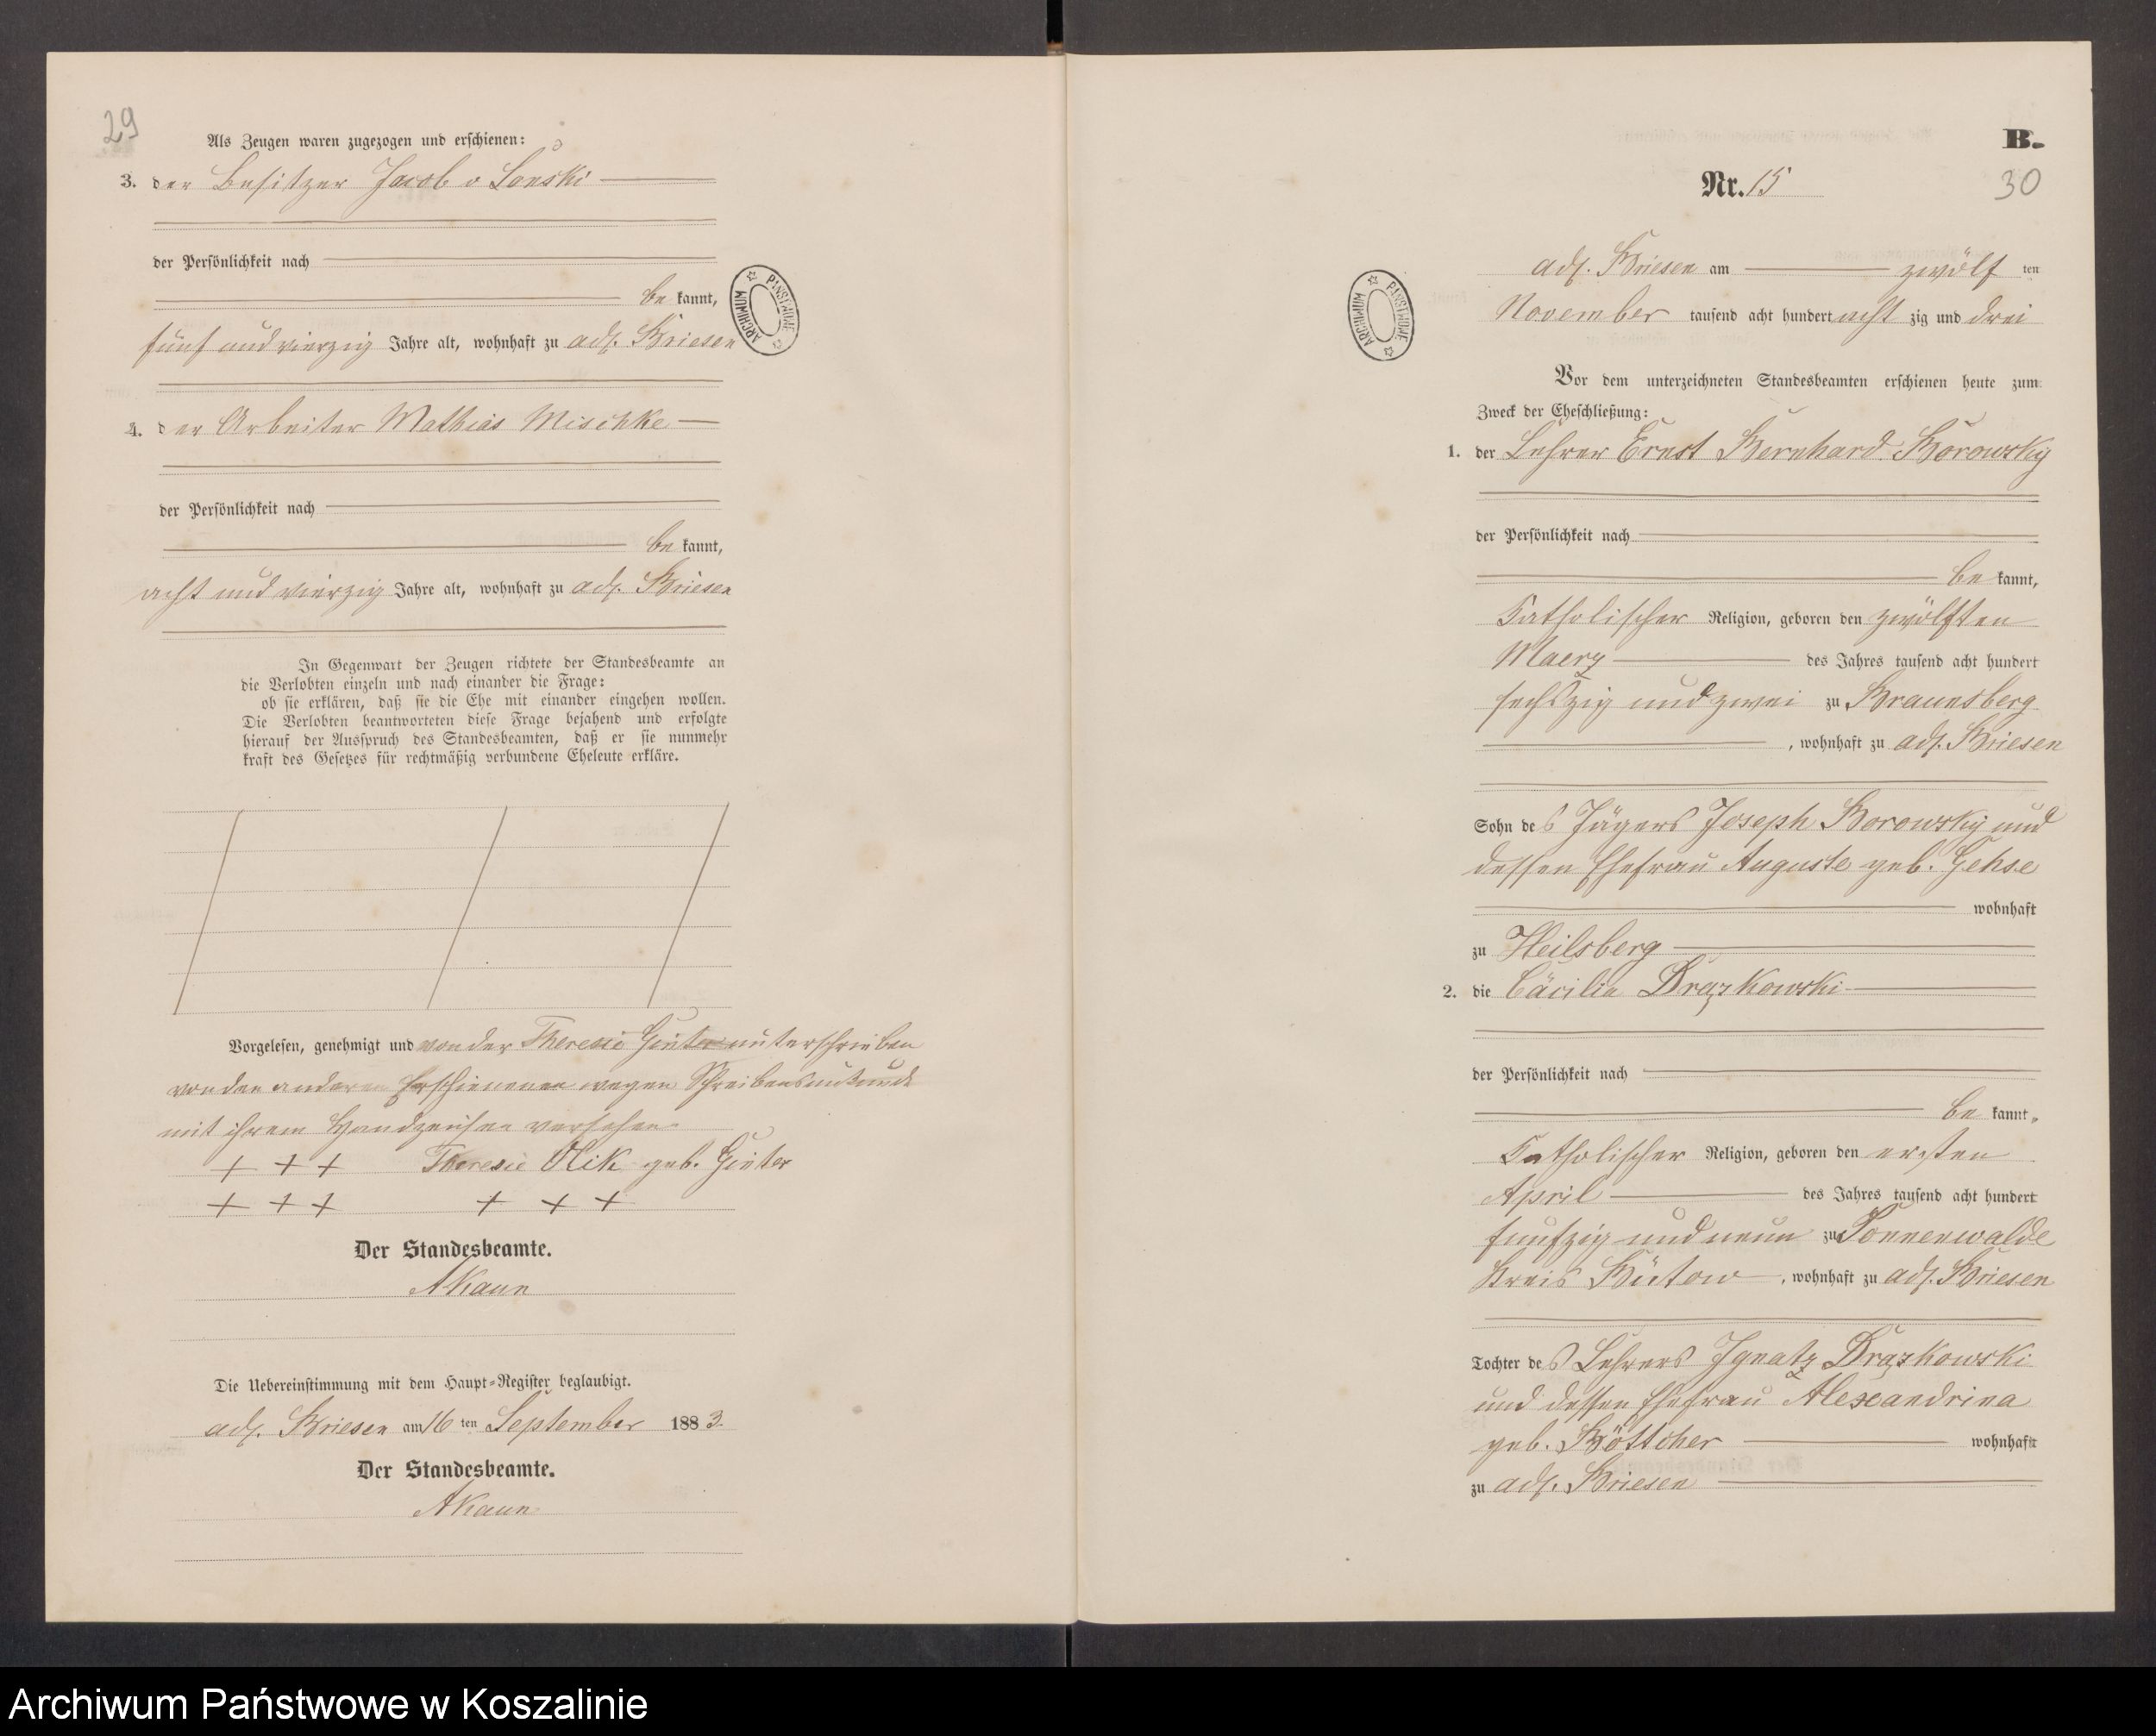 29
Als Zeugen waren zugezogen und erschienen:
3. der Besitzer Jacob v Lonski
der Persönlichkeit nach
be kannt,
fünf und vierzig Jahre alt, wohnhaft zu adl. Briesen
4. der Arbeiter Mathias Mischke
der Persönlichkeit nach
be kannt,
acht und vierzig Jahre alt, wohnhaft zu adl. Briesen
In Gegenwart der Zeugen richtete der Standesbeamte an
die Verlobten einzeln und nach einander die Frage:
ob sie erklären, daß sie die Ehe mit einander eingehen wollen.
Die Verlobten beantworteten diese Frage bejahend und erfolgte
hierauf der Ausspruch des Standesbeamten, daß er sie nunmehr
kraft des Gesetzes für rechtmäßig verbundene Eheleute erkläre.
Vorgelesen, genehmigt und von der Theresie Ginter unterschrieben
von den anderen Erschienenen wegen Schreibensunkunde
mit ihrem Handzeichen versehen.
+ + + Theresie Olik geb. Ginter
+ + + + + +
Der Standesbeamte.
AKaun
Die Uebereinstimmung mit dem Haupt-Register beglaubigt.
adl. Briesen am 16 ten September 1883.
Der Standesbeamte.
AKaun
ARCHIWUM PAŃSTWOWE
B.
Nr. 15
30
adl. Briesen am zwölf ten
November tausend acht hundert acht zig und drei
Vor dem unterzeichneten Standesbeamten erschienen heute zum
Zweck der Eheschließung:
1. der Lehrer Ernst Bernhard Borowsky
der Persönlichkeit nach
be kannt,
Katholischer Religion, geboren den zwölften
Maerz des Jahres tausend acht hundert
sechszig und zwei zu Braunsberg
, wohnhaft zu adl. Briesen
Sohn des Jägers Joseph Borowsky und
dessen Ehefrau Auguste geb. Gehse
wohnhaft
zu Heilsberg
2. die Cäcilia Drążkowski
der Persönlichkeit nach
be kannt,
Katholischer Religion, geboren den ersten
April des Jahres tausend acht hundert
funfzig und neun zu Sonnenwalde
Kreis Bütow, wohnhaft zu adl. Briesen
Tochter des Lehrers Ignatz Drążkowski
und dessen Ehefrau Alexandrina
geb. Böttcher wohnhaft
zu adl. Briesen
ARCHIWUM PAŃSTWOWE
Archiwum Państwowe w Koszalinie